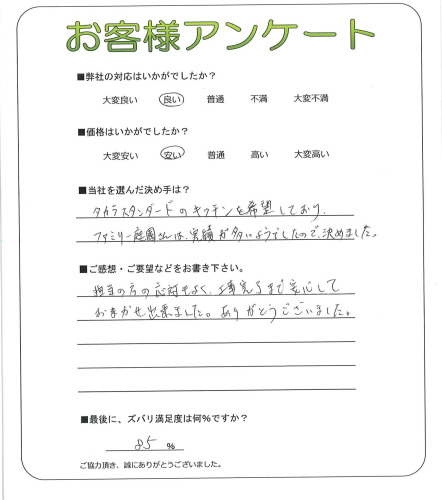 お客様アンケート
■弊社の対応はいかがでしたか？
大変良い 良い 普通 不満 大変不満
■価格はいかがでしたか？
大変安い 安い 普通 高い 大変高い
■当社を選んだ決め手は？
タカラスタンダードのキッチンを希望しており、
ファミリー庭園さんは、実績が多いようでしたので、決めました。
■ご感想・ご要望などをお書き下さい。
担当の方の応対もよく、工事完了まで安心して
おまかせ出来ました。ありがとうございました。
■最後に、ズバリ満足度は何%ですか？
85 %
ご協力頂き、誠にありがとうございました。